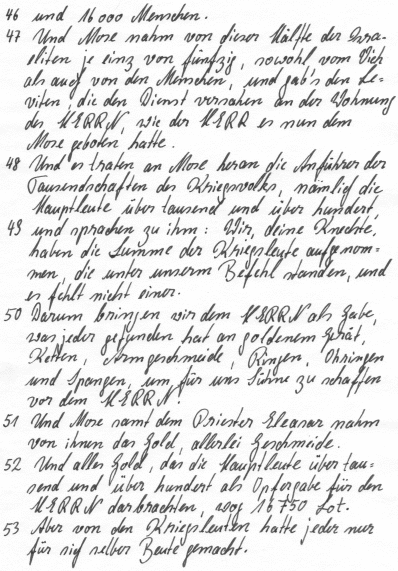 46 und 16 000 Menschen.
47 Und Mose nahm von dieser Hälfte der Isra=
eliten je eins von fünfzig, sowohl vom Vieh
als auch von den Menschen, und gab's den Le=
viten, die den Dienst versahen an der Wohnung
des HERRN, wie der HERR es nun dem
Mose geboten hatte.
48 Und es traten an Mose heran die Anführer der
Tausendschaften des Kriegsvolks, nämlich die
Hauptleute über tausend und über hundert,
49 und sprachen zu ihm: Wir, deine Knechte,
haben die Summe der Kriegsleute aufgenom=
men, die unter unserm Befehl standen, und
es fehlt nicht einer.
50 Darum bringen wir dem HERRN als Gabe,
was jeder gefunden hat an goldenem Gerät,
Ketten, Armgeschmeide, Ringen, Ohrringen
und Spangen, um für uns Sühne zu schaffen
vor dem HERRN!
51 Und Mose samt dem Priester Eleasar nahm
von ihnen das Gold, allerlei Geschmeide.
52 Und alles Gold, das die Hauptleute über tau=
send und über hundert als Opfergabe für den
HERRN darbrachten, wog 16 750 Lot.
53 Aber von den Kriegsleuten hatte jeder nur
für sich selber Beute gemacht.